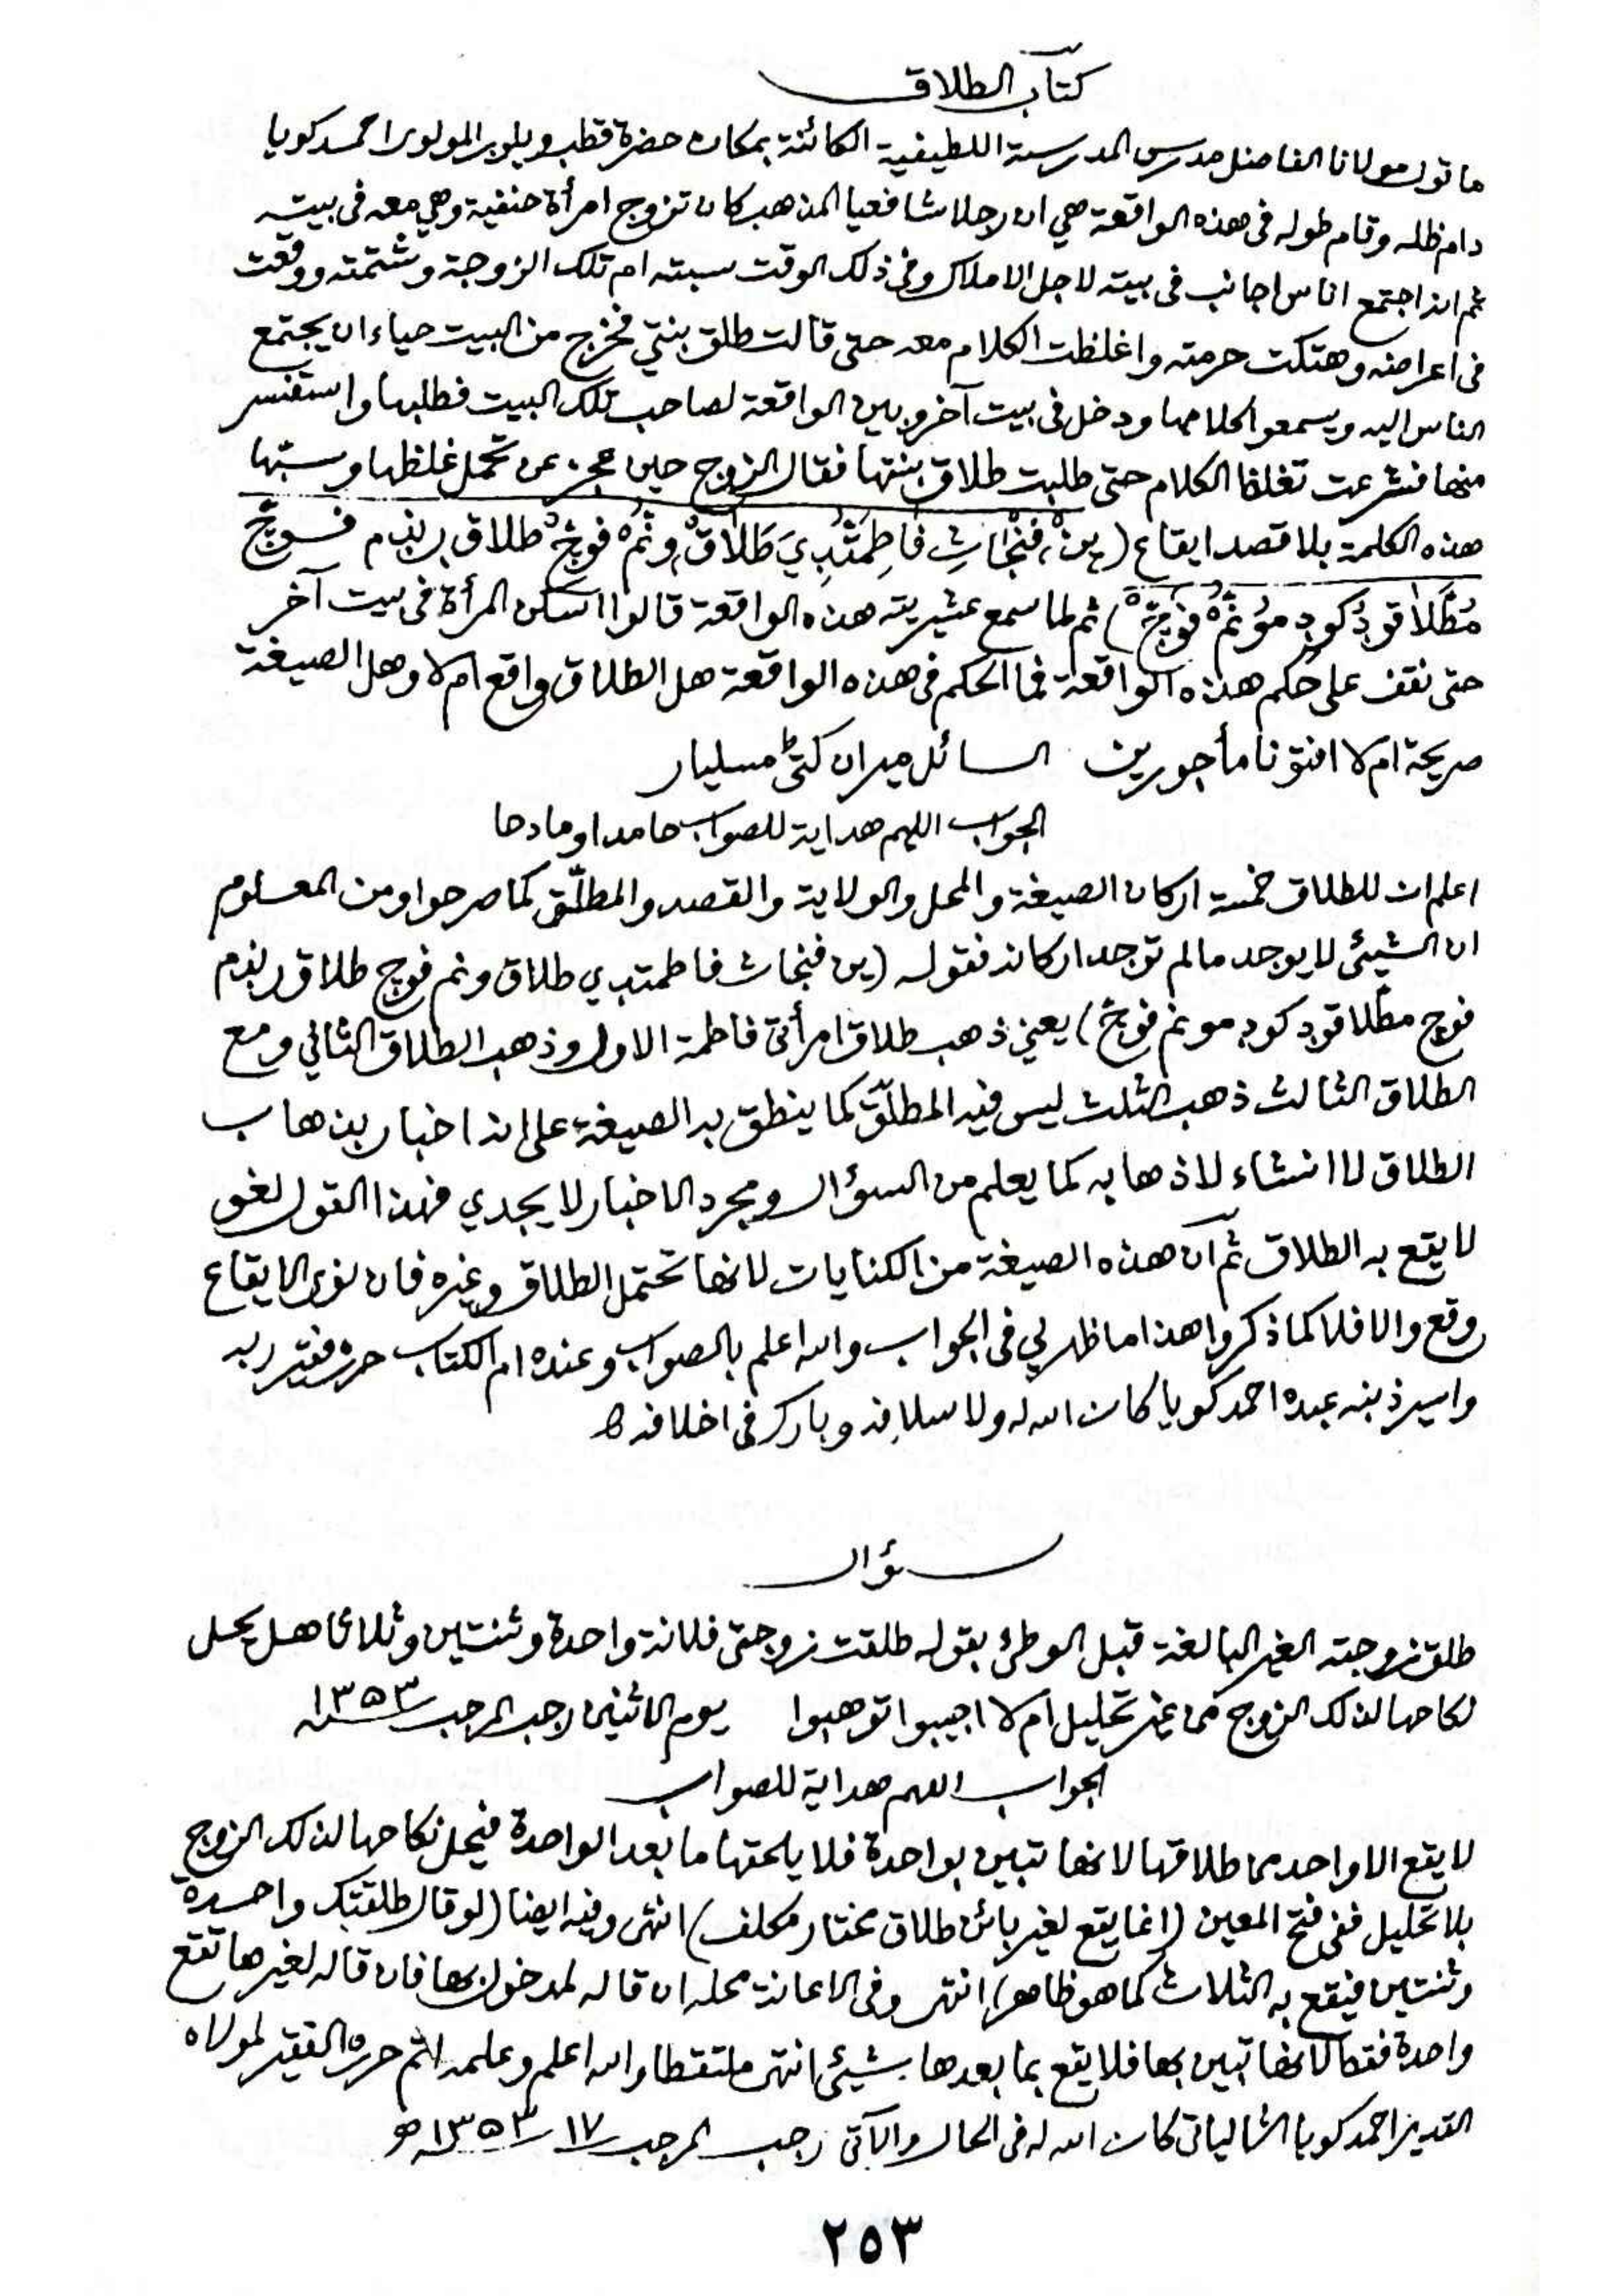 كتاب الطلاق
ما قول مولانا الفاضل مدرس المدرسة اللطيفية الكائنة بمكان حضرة قطب ويلور المولوى احمد كويا
دام ظله وقام طوله فى هذه الواقعة هي ان رجلا شافعيا المذهب كان تزوج امرأة حنفية وهي معه فى بيته
ثم انه اجتمع اناس اجانب فى بيته لاجل الاملاك وفى ذلك الوقت سبته ام تلك الزوجة وشتمته ووقعت
فى اعراضه وهتكت حرمته واغلظت الكلام معه حتى قالت طلق بنتي فخرج من البيت حياء ان يجتمع
الناس اليه ويسمعوا كلامها ودخل فى بيت آخر وبين الواقعة لصاحب تلك البيت فطلبها واستفسر
منها فشرعت تغلظ الكلام حتى طلبت طلاق بنتها فقال الزوج حين عجز عن تحمل غلظها وسبّها
هذه الكلمة بلا قصد ايقاع (ين فنجاث فاطمتدي طلاق ونم فوچ طلاق رنذم فوچ
مطلاقود كود مونم فوچ) ثم لما سمع عشيرته هذه الواقعة قالوا اسكن المرأة فى بيت آخر
حتى نقف على حكم هذه الواقعة فما الحكم فى هذه الواقعة هل الطلاق واقع ام لا وهل الصيغة
صريحة ام لا افتونا مأجورين السائل ميران كتى مسليار
الجواب اللهم هداية للصواب حامدا ومادحا
اعلم ان للطلاق خمسة اركان الصيغة والمحل والولاية والقصد والمطلّق كما صرحوا ومن المعلوم
ان الشيئى لا يوجد مالم توجد اركانه فقوله (ين فنجاث فاطمتدي طلاق ونم فوچ طلاق رنذم
فوچ مطلاقود كود مونم فوچ) يعني ذهب طلاق امرأتى فاطمة الاول وذهب الطلاق الثاني ومع
الطلاق الثالث ذهب الثلث ليس فيه المطلّق كما ينطق به الصيغة على انه اخبار بذهاب
الطلاق لا انشاء لاذهابه كما يعلم من السؤال ومجرد الاخبار لا يجدي فهذا القول لغو
لا يقع به الطلاق ثم ان هذه الصيغة من الكنايات لانها تحتمل الطلاق وغيره فان نوى الايقاع
وقع والا فلا كما ذكروا هذا ما ظهر لي فى الجواب والله اعلم بالصواب وعنده ام الكتاب حرره فقير ربه
واسير ذنبه عبده احمد كويا كان الله له ولاسلافه وبارك فى اخلافه
سؤال
طلق زوجته الغير البالغة قبل الوطئ بقوله طلقت زوجتى فلانة واحدة وثنتين وثلاثا هل يحل
نكاحها لذلك الزوج من غير تحليل ام لا اجيبوا توهبوا يوم الاثنين رجب المرجب ١٣٥٣
الجواب اللهم هداية للصواب
لا يقع الا واحد من طلاقها لانها تبين بواحدة فلا يلحقها ما بعد الواحدة فيحل نكاحها لذلك الزوج
بلا تحليل ففى فتح المعين (انما يقع لغير بائن طلاق مختار مكلف) انتهى وفيه ايضا (لو قال طلقتك واحدة
وثنتين فيقع به الثلاث كما هو ظاهر) انتهى وفى الاعانة محله ان قاله لمدخول بها فان قاله لغيرها تقع
واحدة فقط لانها تبين بها فلا يقع بما بعدها شيئ انتهى ملتقطا والله اعلم وعلمه اتم حرره الفقير لمولاه
القدير احمد كويا الشالياتى كان الله له فى الحال والآتى رجب المرجب ١٧ ١٣٥٣
٢٥٣